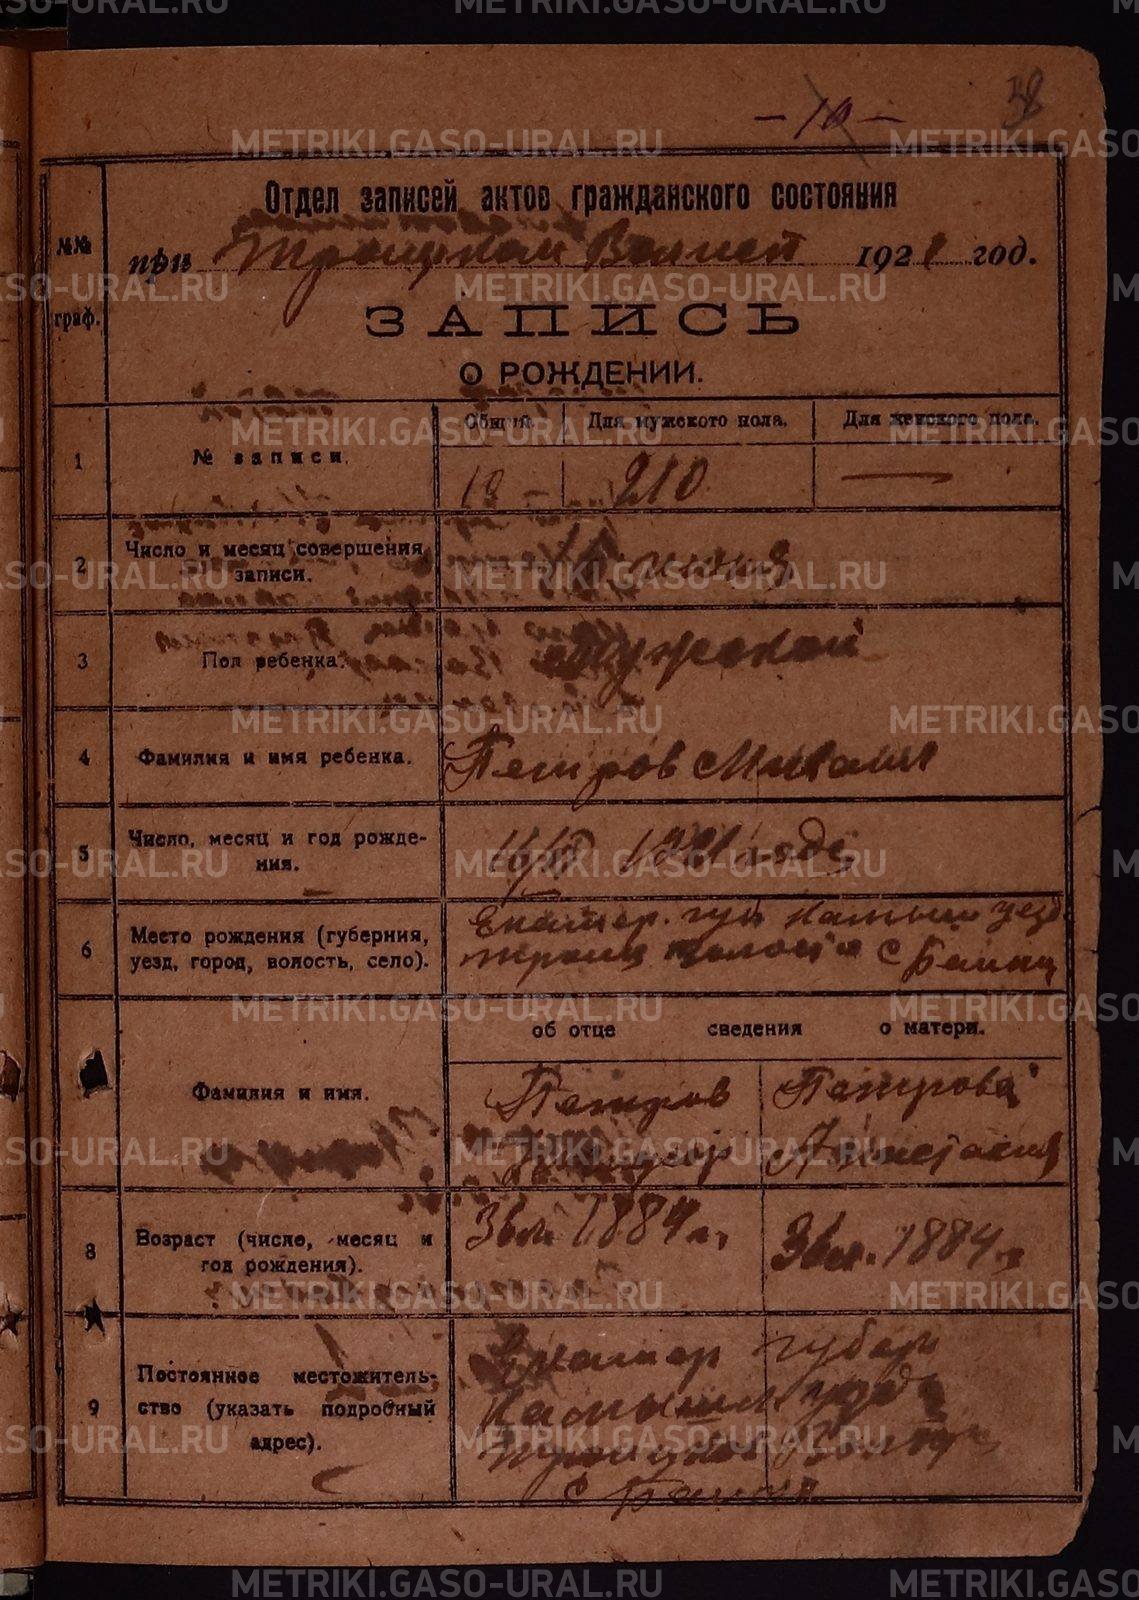 METRIKI.GASO-URAL.RU
- 10 -
38
Отдел записей актов гражданского состояния
№№ граф.
при Троицком Волисп 1921 год.
ЗАПИСЬ
О РОЖДЕНИИ.
1
№ записи.
Общий. Для мужского пола. Для женского пола.
210 —
2
Число и месяц совершения
записи.
июня
3
Пол ребенка.
Мужской
4
Фамилия и имя ребенка.
Петров Михаил
5
Число, месяц и год рожде-
ния.
1921 года
6
Место рождения (губерния,
уезд, город, волость, село).
Екатер. губ Камыш уезд.
троиц волости с
об отце сведения о матери.
Фамилия и имя.
Петров
Петрова
Анистасия
8
Возраст (число, месяц и
год рождения).
1884 г.
1884 г.
9
Постоянное местожитель-
ство (указать подробный
адрес).
Екатер губер
Камышл уезд
Троицкой Волст
с